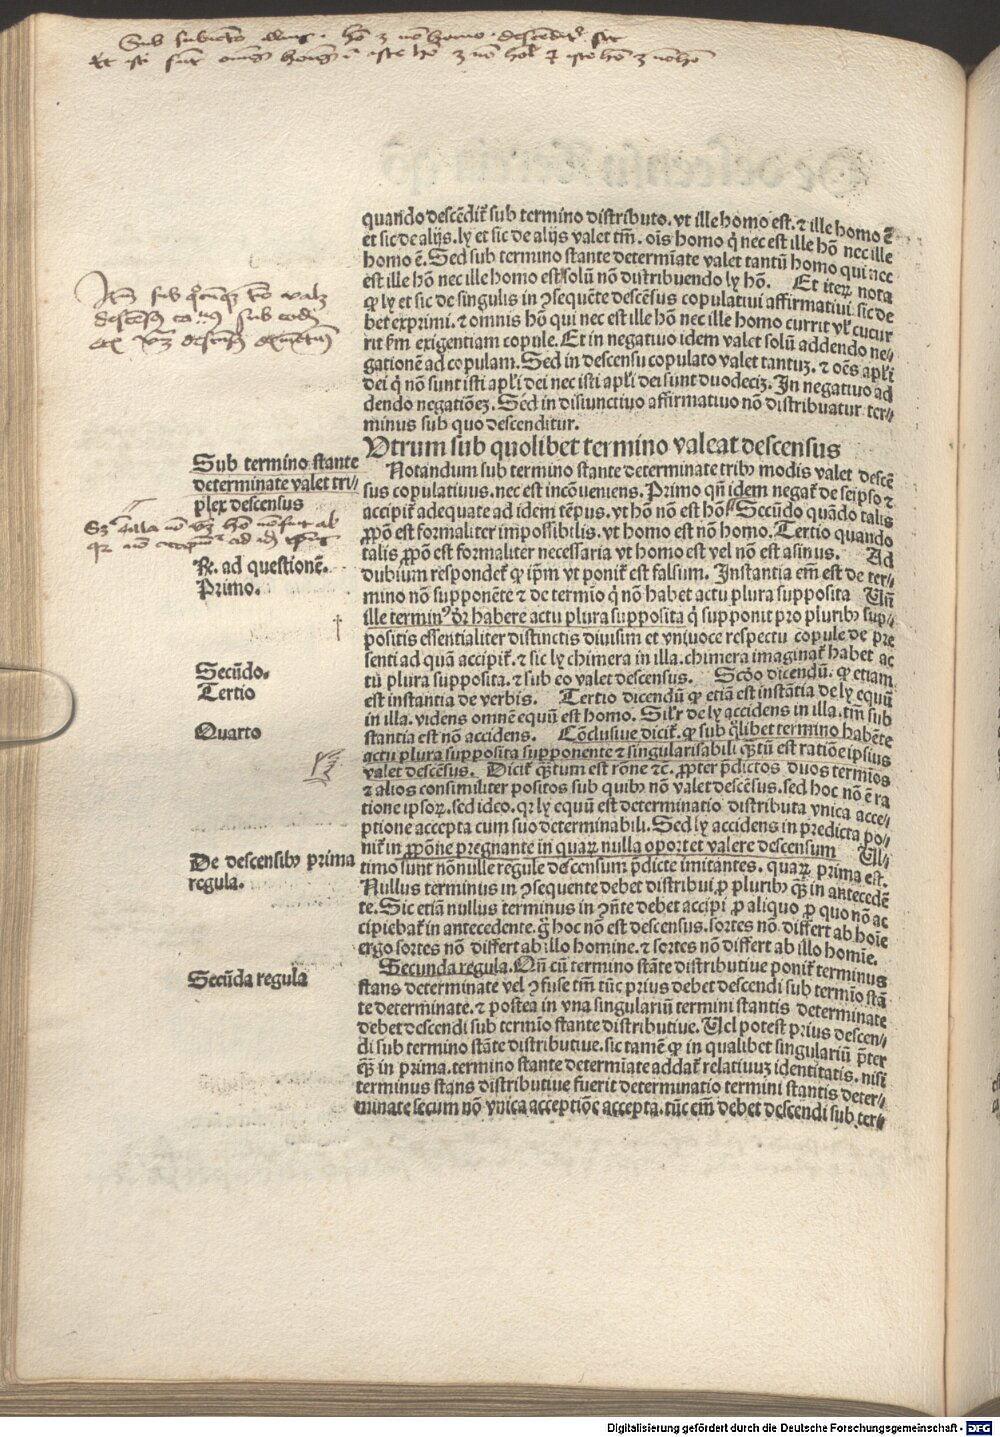 Sub subiecto
Et sic sunt
quando descēdit̄ sub termino distributo. vt ille homo est. ⁊ ille homo ē
et sic de alijs. ly et sic de alijs valet tm̄. oīs homo q̄ nec est ille hō nec ille
homo ē. Sed sub termino stante determīate valet tantū homo qui nec
est ille hō nec ille homo est solū nō distribuendo ly hō. Et iteꝝ nota
ꝙ ly et sic de singulis in ꝯsequēte descēsus copulatiui affirmatiui sic de
bet exprimi. ⁊ omnis hō qui nec est ille hō nec ille homo currit vl̓ cucur
rit ẜm exigentiam copule. Et in negatiuo idem valet solū addendo ne-
gationē ad copulam. Sed in descensu copulato valet tantuꝫ. ⁊ oēs apl̓i
dei q̄ nō sunt isti apl̓i dei nec isti apl̓i dei sunt duodeciꝫ. In negatiuo ad
dendo negatiōeꝫ. Sed in disiunctiuo affirmatiuo nō distribuatur ter-
minus sub quo descenditur.
Utrum sub quolibet termino valeat descensus
Sub termino stante
determinate valet tri-
plex descensus
Notandum sub termino stante determinate tribꝰ modis valet descē
sus copulatiuus. nec est incōueniens. Primo qn̄ idem negat̄ de seipso ⁊
accipit̄ adequate ad idem tēpus. vt hō nō est hō Secūdo quādo talis
ꝓpō est formaliter impossibilis. vt homo est nō homo. Tertio quando
talis ꝓpō est formaliter necessaria vt homo est vel nō est asinus. Ad
℞. ad questionē.
Primo.
dubium respondet̄ ꝙ ip̄m vt ponit̄ est falsum. Instantia em̄ est de ter-
mino nō supponēte ⁊ de termīo q̄ nō habet actu plura supposita Un̄
ille terminꝰ dr̄ habere actu plura supposita q̄ supponit pro pluribꝰ sup-
positis essentialiter distinctis diuisim et vniuoce respectu copule de pre
senti ad quā accipit̄. ⁊ sic ly chimera in illa. chimera imaginat̄ habet ac
Secūdo.
Tertio
tu plura supposita. ⁊ sub eo valet descensus. Scd̄o dicendū. ꝙ etiam
est instantia de verbis. Tertio dicendū ꝙ etiā est instātia de ly equū
in illa. videns omnē equū est homo. Sil̓r de ly accidens in illa. tm̄ sub
Quarto
stantia est nō accidens. Cōclusiue dicit̄. ꝙ sub q̄libet termino habēte
actu plura supposita supponente ⁊ singularisabili q̄ꝫtū est ratiōe ipsius
valet descēsus. Dicit̄ q̄ꝫtum est rōne ⁊c. ꝓpter p̄dictos duos termīos
⁊ alios consimiliter positos sub quibꝰ nō valet descēsus. sed hoc nō ē ra
tione ipsoꝝ. sed ideo. qr ly equū est determinatio distributa vnica acce-
ptione accepta cum suo determinabili. Sed ly accidens in predicta po-
nit̄ in ꝓpōne pregnante in quaꝝ nulla oportet valere descensum Ul-
De descensibꝰ prima
regula.
timo sunt nōnulle regule descensum p̄dicte imitantes. quaꝝ prima est.
Nullus terminus in ꝯsequente debet distribui ꝑ pluribꝰ q̄ꝫ in antecedē
te. Sic etiā nullus terminus in ꝯn̄te debet accipi ꝓ aliquo ꝓ quo nō ac
cipiebat̄ in antecedente. g̊ hoc nō est descensus. sortes nō differt ab hoīe
ergo sortes nō differt ab illo homine. ⁊ sortes nō differt ab illo homīe.
Secūda regula
Secunda regula. Qn̄ cū termino stāte distributiue ponit̄ terminus
stans determinate vel ꝯfuse tm̄ tūc prius debet descendi sub termīo stā
te determinate. ⁊ postea in vna singulariū termini stantis determinate
debet descendi sub termīo stante distributiue. Uel potest prius descen-
di sub termino stāte distributiue. sic tamē ꝙ in qualibet singulariū p̄ter
q̄ꝫ in prima. termino stante determīate addat̄ relatiuuꝫ identitatis. nisi
terminus stans distributiue fuerit determinatio termini stantis deter-
minate secum nō vnica acceptiōe accepta. tūc em̄ debet descendi sub ter-
Digitalisierung gefördert durch die Deutsche Forschungsgemeinschaft - DFG